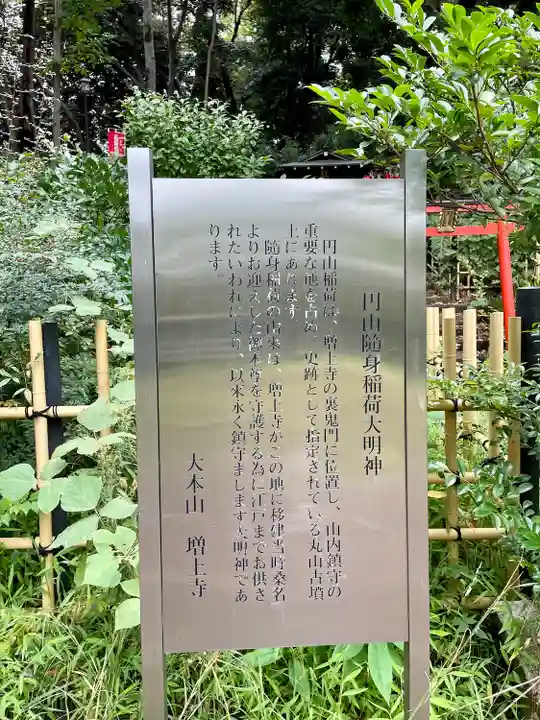 円山隨身稲荷大明神
円山稲荷は、増上寺の裏鬼門に位置し、山内鎮守の
重要な地を占め、史跡として指定されている丸山古墳
上にあります。
隨身稲荷の由来は、増上寺がこの地に移建当時桑名
よりお迎えした御本尊を守護する為に江戸までお供さ
れたいわれにより、以来永く鎮守まします大明神であ
ります。
大本山 増上寺